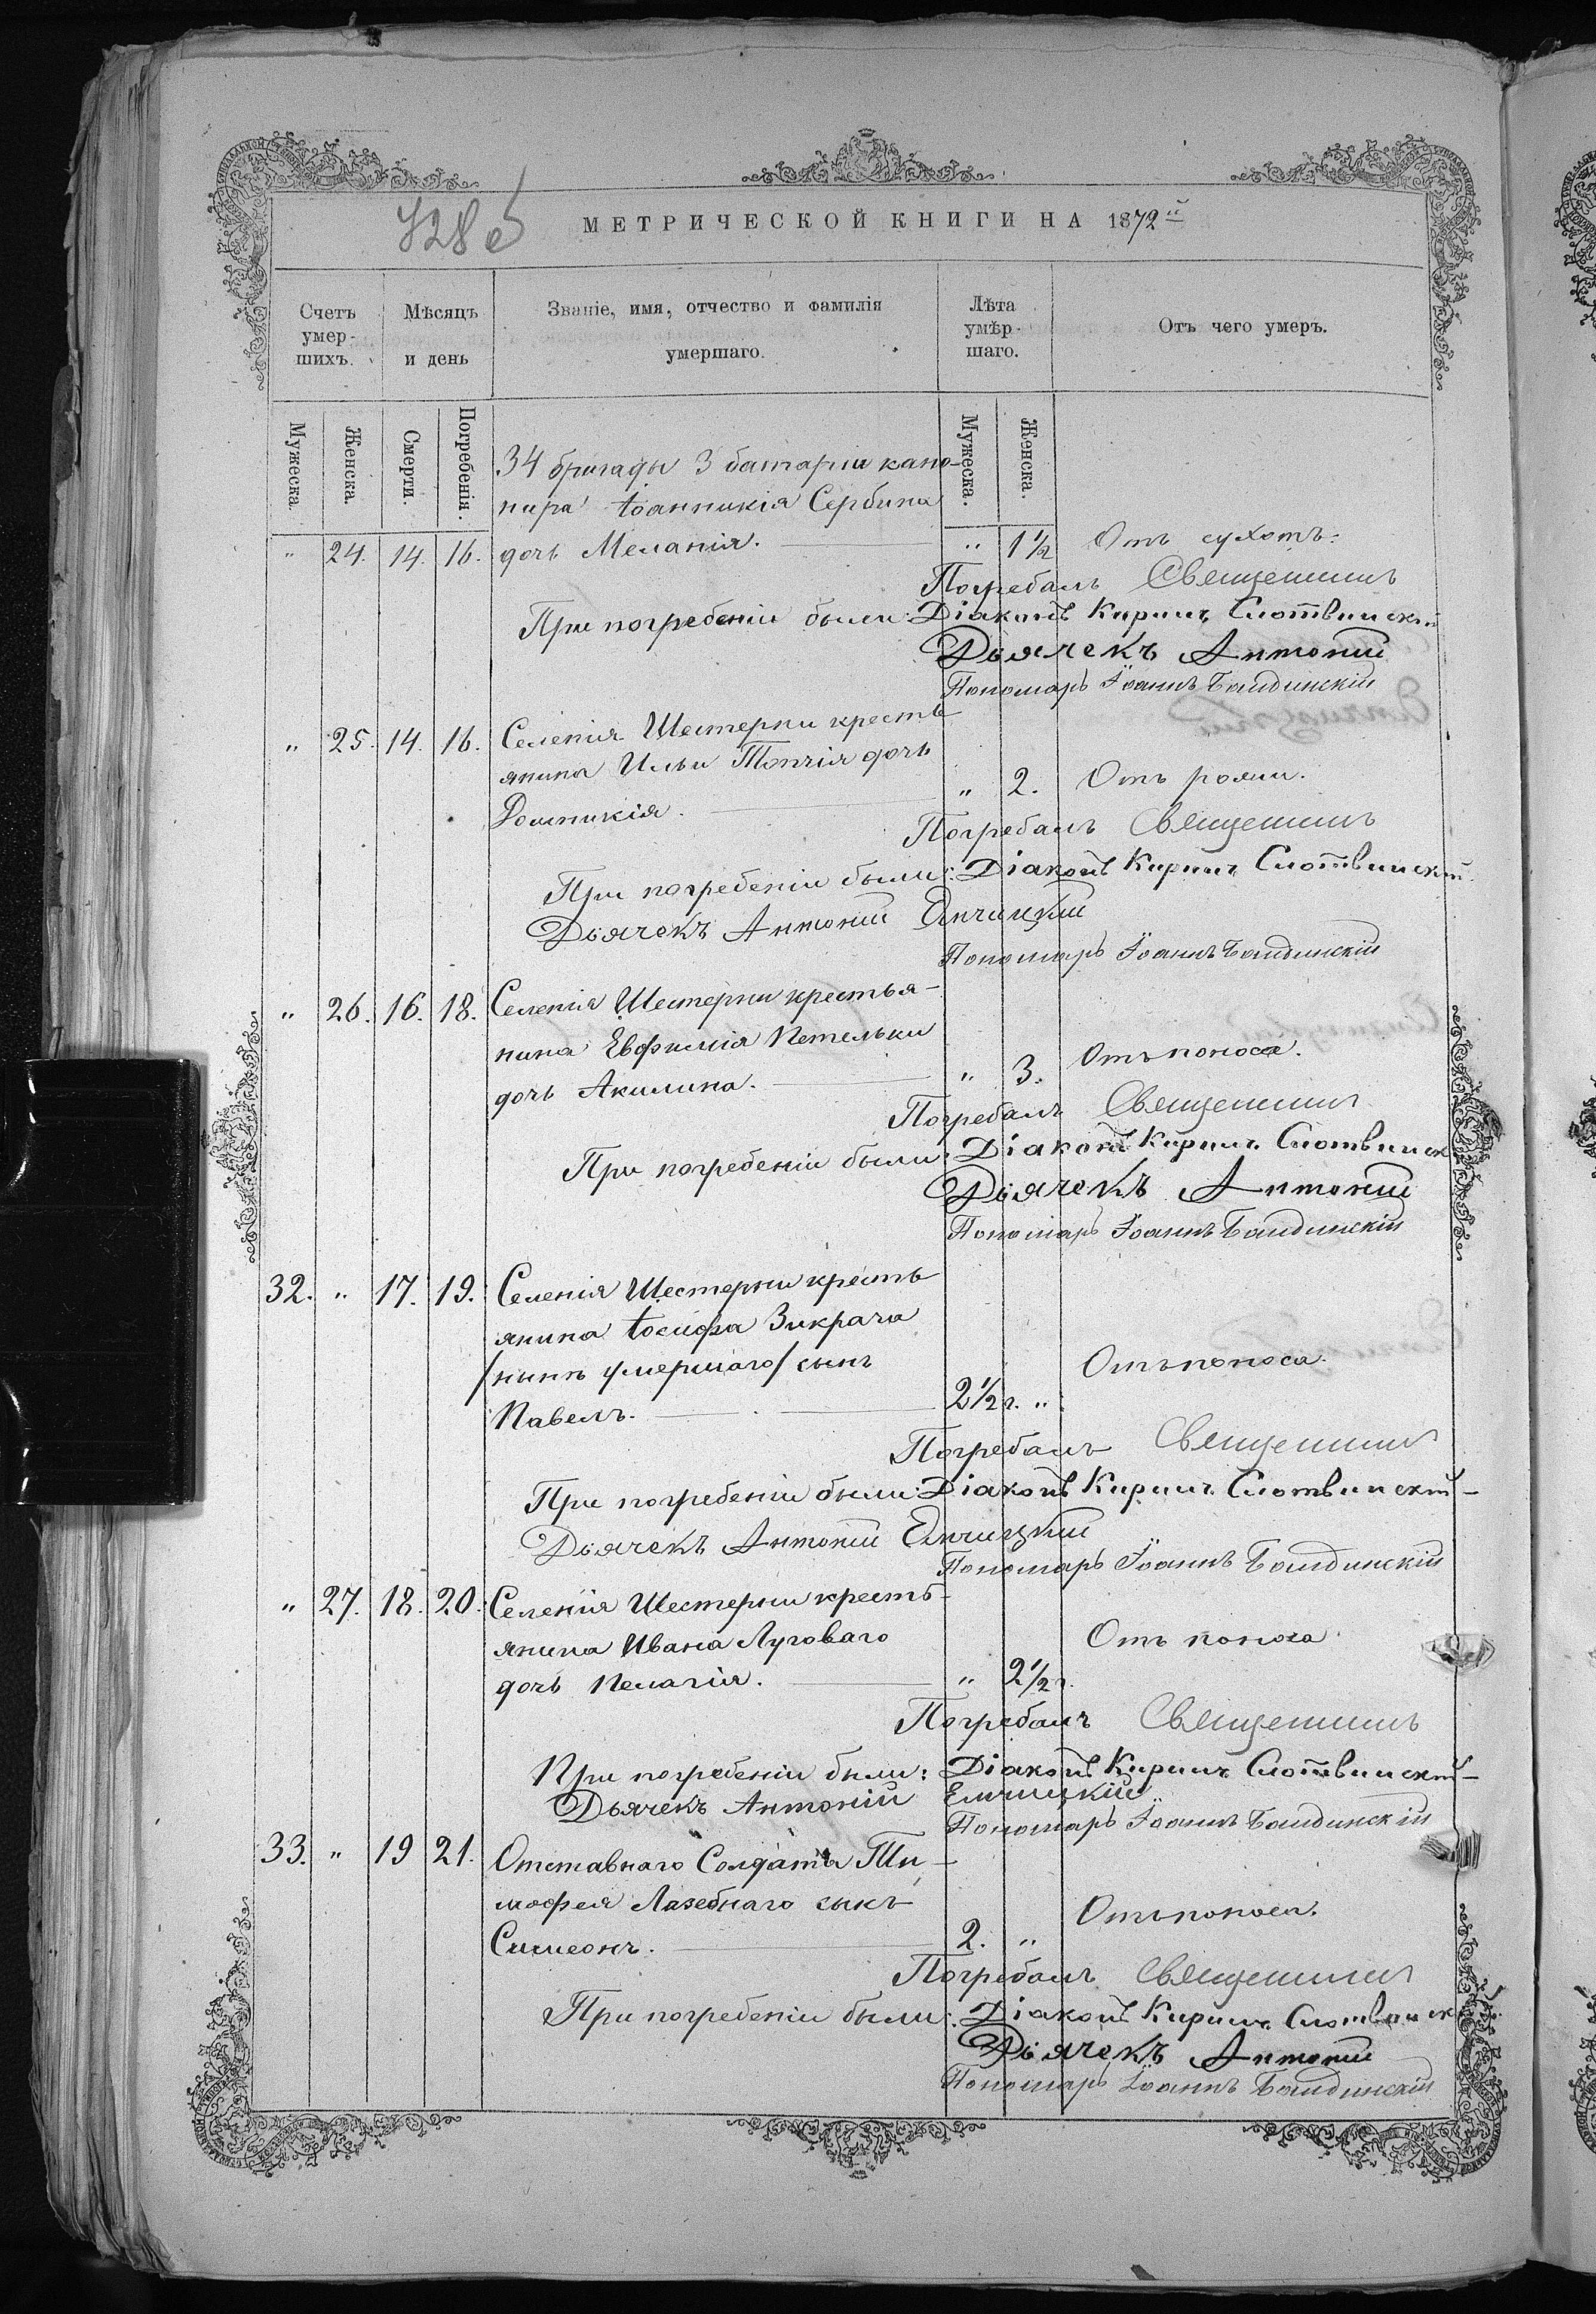 МЕТРИЧЕСКОЙ КНИГИ НА 1872й
Счетъ умер-шихъ.
Мѣсяцъ и день
Званіе, имя, отчество и фамилія умершаго.
Лѣта умѣр-шаго.
Отъ чего умеръ.
Мужеска.
Женска.
Смерти.
Погребенія.
Мужеска.
Женска.
34 бригады 3 батареи кано-
нира Іоанникія Сербина
" 24. 14. 16. дочь Меланія. " 1½ Отъ сухотъ.
Погребалъ Священникъ
При погребеніи были: Діаконъ Кирилъ Слотвинскій
Дьячекъ Антоній
Пономарь Іоаннъ
" 25. 14. 16. Селенія Шестерни кресть
янина Ильи Топчія дочь
Домникія. " 2. Отъ рожи.
Погребалъ Священникъ
При погребеніи были: Діаконъ Кирилъ Слотвинскій
Дьячекъ Антоній Елчицкій
Пономарь Іоаннъ
" 26. 16. 18. Селенія Шестерни крестья-
нина Евфимія Петельки
дочь Акилина. " 3. Отъ поноса.
Погребалъ Священникъ
При погребеніи были: Діаконъ Кирилъ Слотвинск
Дьячекъ Антоній
Пономарь Іоаннъ
32. " 17. 19. Селенія Шестерни кресть
янина Іосифа Зикрача
/нынѣ умершаго/ сынъ
Павелъ. 2½ г. " Отъ поноса.
Погребалъ Священникъ
При погребеніи были: Діаконъ Кирилъ Слотвинскій
Дьячекъ Антоній Елчицкій
Пономарь Іоаннъ
" 27. 18. 20. Селенія Шестерни кресть-
янина Ивана Луговаго
дочь Пелагія. " 2½ г. Отъ поноса
Погребалъ Священникъ
При погребеніи были: Діаконъ Кирилъ Слотвинскій
Дьячекъ Антоній Елчицкій
Пономарь Іоаннъ
33. " 19 21. Отставнаго Солдата Ти-
мофея Лазебнаго сынъ
Симеонъ. 2. " Отъ поноса.
Погребалъ Священникъ
При погребеніи были: Діаконъ Кирилъ Слотвинск
Дьячекъ Антоній
Пономарь Іоаннъ